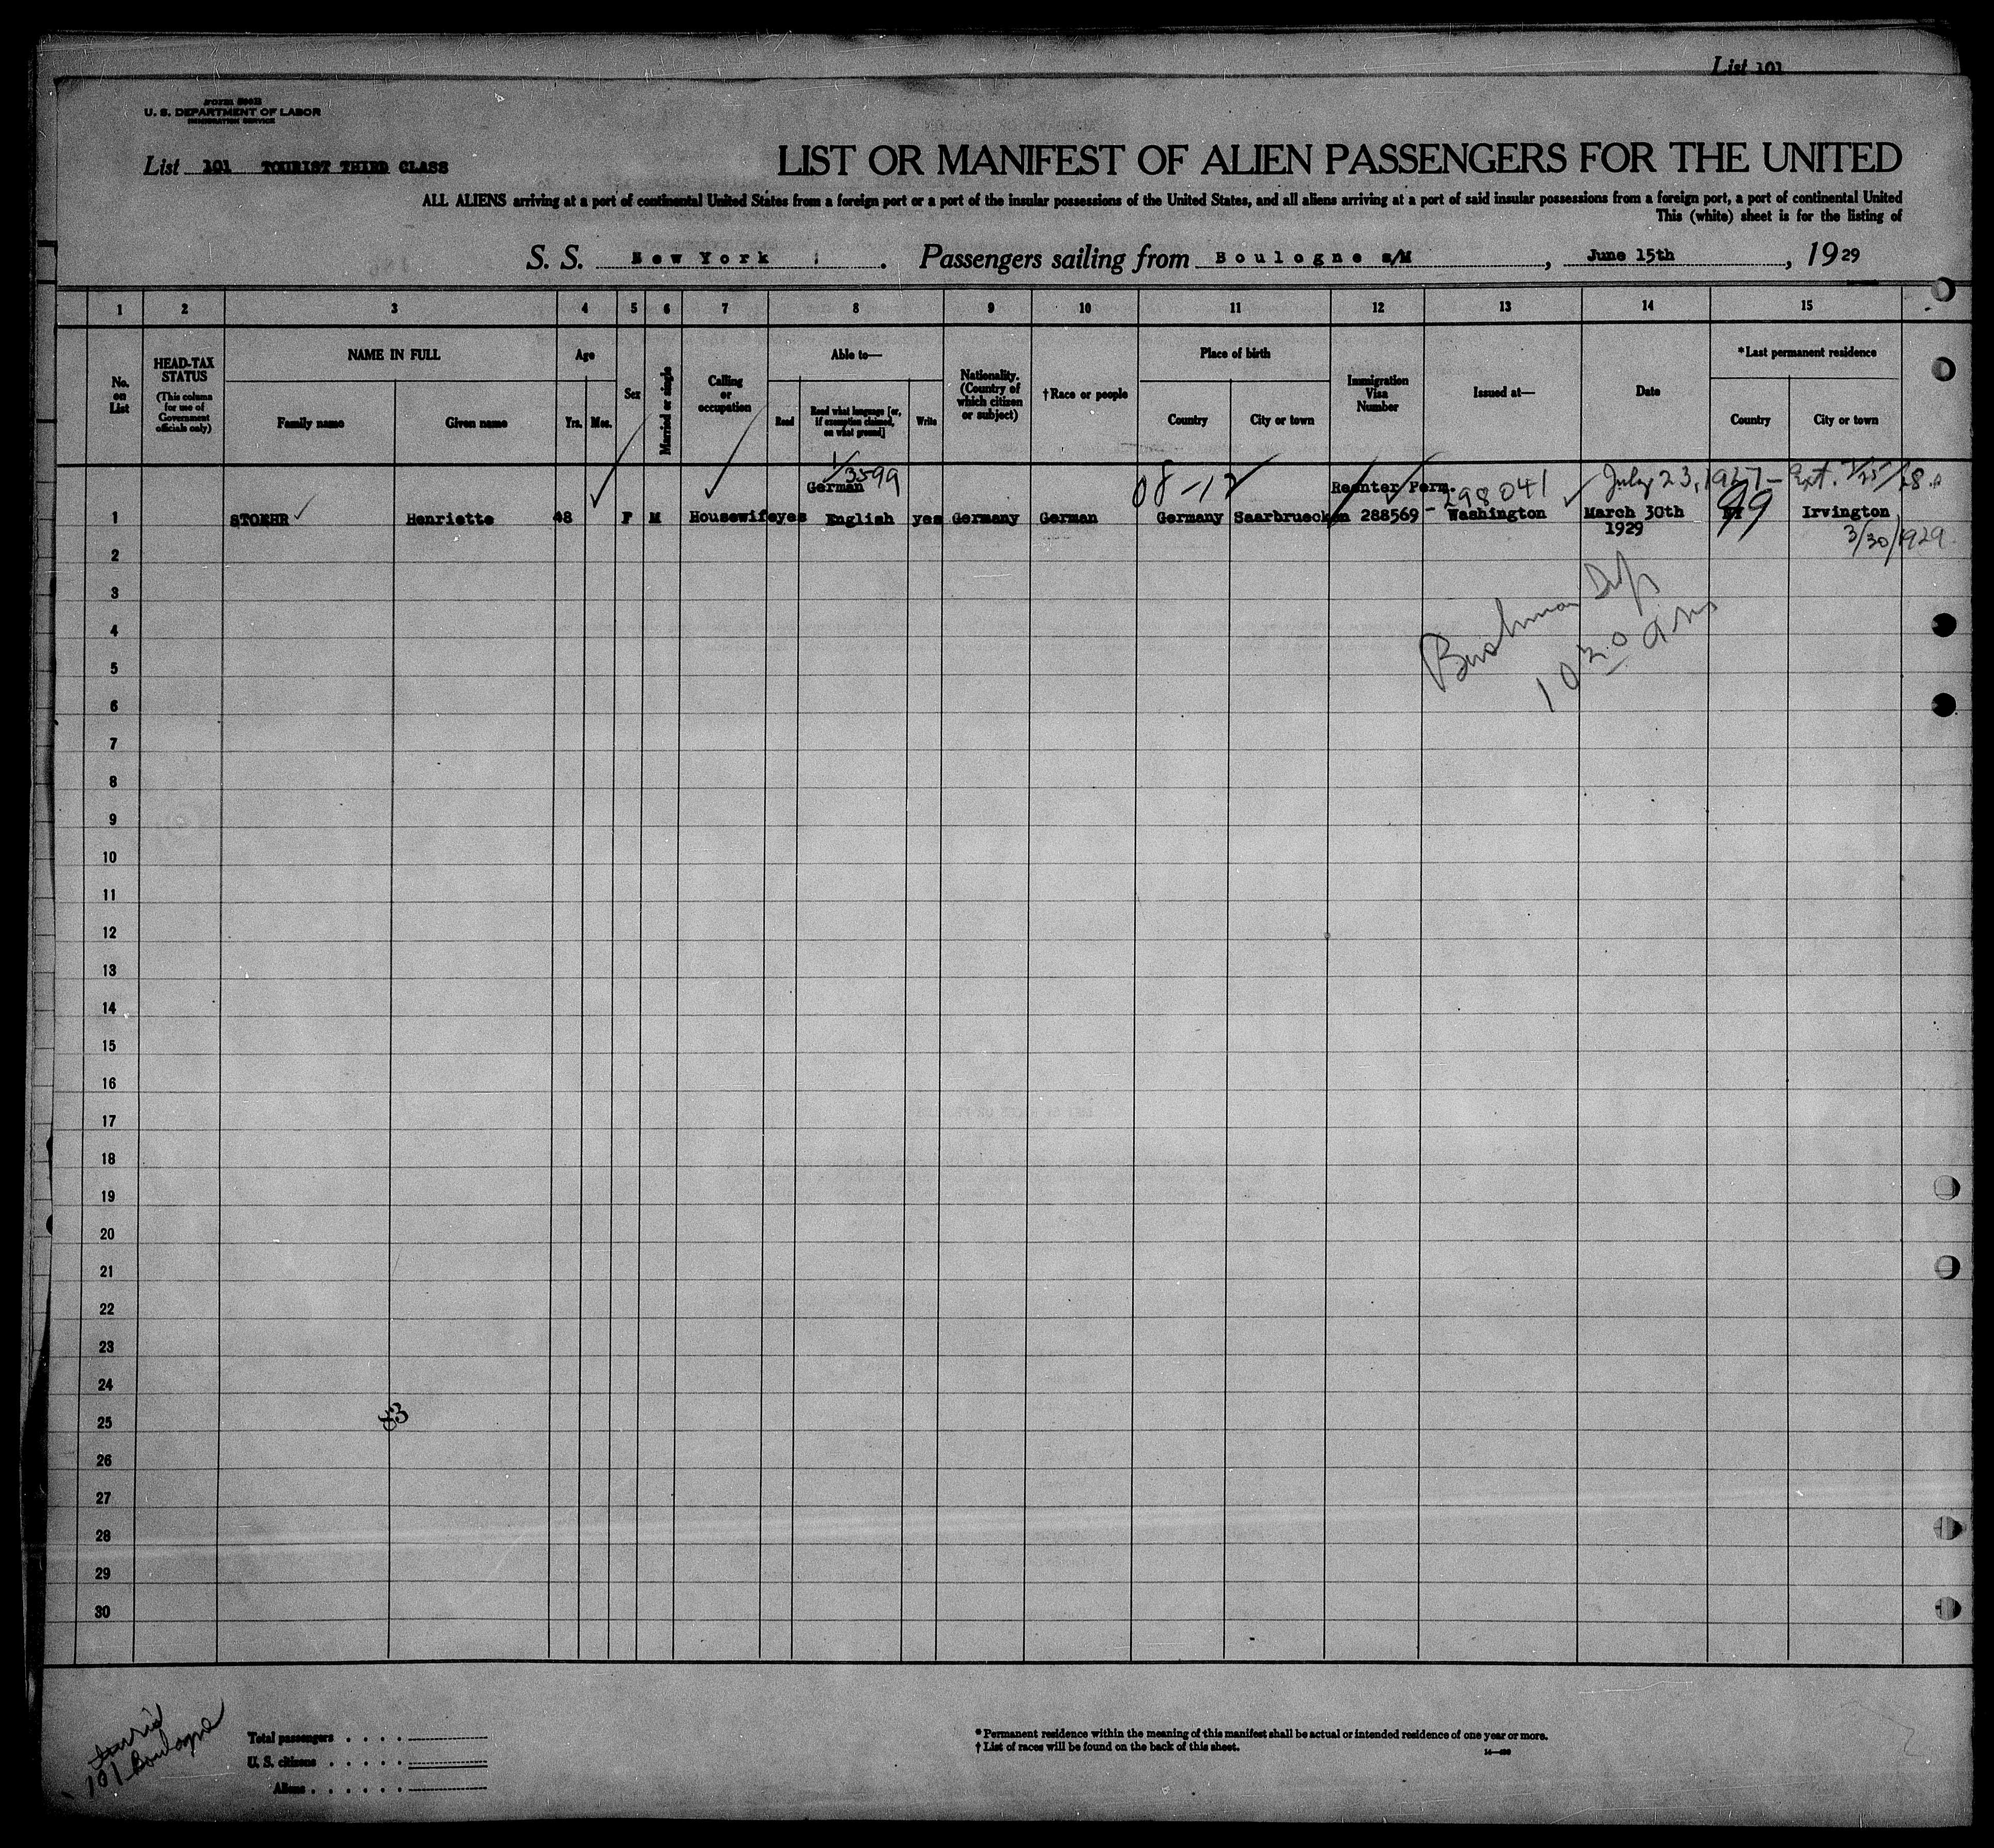 List 101
U. S. DEPARTMENT OF LABOR
IMMIGRATION SERVICE
List 101 TOURIST THIRD CLASS
LIST OR MANIFEST OF ALIEN PASSENGERS FOR THE UNITED
ALL ALIENS arriving at a port of continental United States from a foreign port or a port of the insular possessions of the United States, and all aliens arriving at a port of said insular possessions from a foreign port, a port of continental United
This (white) sheet is for the listing of
S. S. New York . Passengers sailing from Boulogne s/M, June 15th, 1929
1 2 3 4 5 6 7 8 9 10 11 12 13 14 15
No. on List
HEAD-TAX STATUS
(This column for use of Government officials only)
NAME IN FULL
Family name Given name
Age
Yrs. Mos.
Sex
Married or single
Calling or occupation
Able to—
Read
Read what language [or, if exemption claimed, on what ground]
Write
Nationality. (Country of which citizen or subject)
†Race or people
Place of birth
Country City or town
Immigration Visa Number
Issued at—
Date
*Last permanent residence
Country City or town
1/3599
08-17
298041
July 23, 1927- Ext. 7/25/28.
German Reenter Perm.
1 STOEHR Henriette 48 F M Housewife yes English yes Germany German Germany Saarbruecken 288569 - Washington March 30th 99 Irvington
1929
3/30/1929
2
3
4
5
6
7
8
9
10
11
12
13
14
15
16
17
18
19
20
21
22
23
24
25
26
27
28
29
30
10 30 am
83
101 Boulogne
Total passengers
U. S. citizens
Aliens
* Permanent residence within the meaning of this manifest shall be actual or intended residence of one year or more.
† List of races will be found on the back of this sheet.